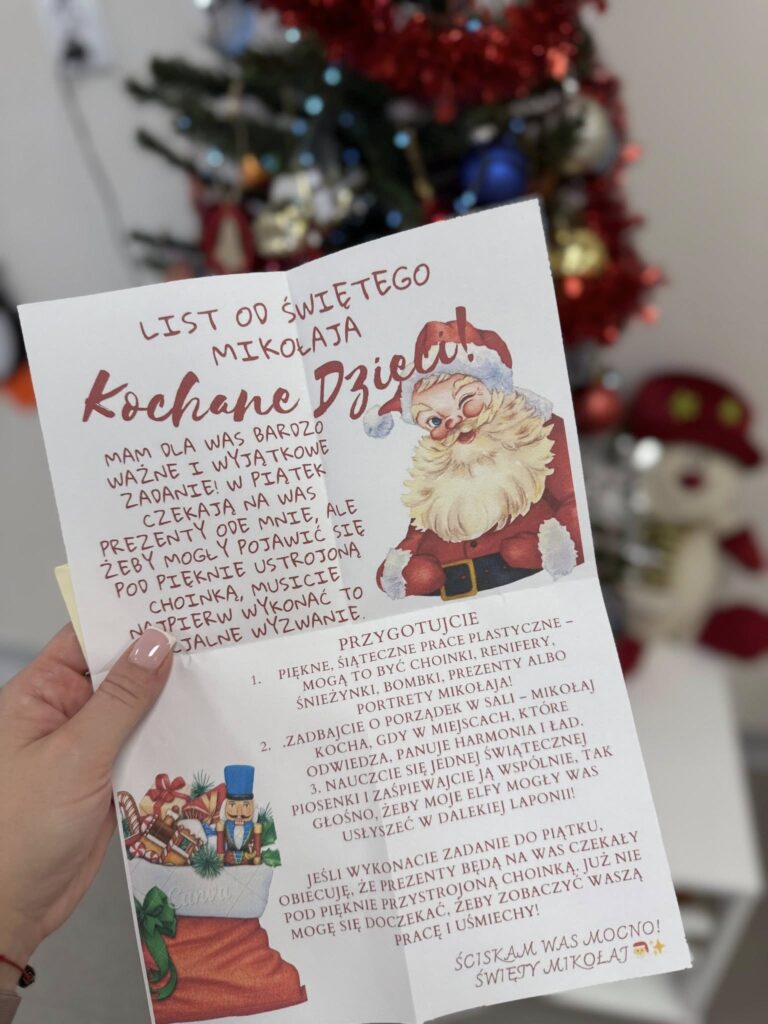 LIST OD ŚWIĘTEGO
MIKOŁAJA
Kochane Dzieci!
MAM DLA WAS BARDZO
WAŻNE I WYJĄTKOWE
ZADANIE! W PIĄTEK
CZEKAJĄ NA WAS
PREZENTY ODE MNIE, ALE
ŻEBY MOGŁY POJAWIĆ SIĘ
POD PIĘKNIE USTROJONĄ
CHOINKĄ, MUSICIE
NAJPIERW WYKONAĆ TO
CJALNE WYZWANIE.
PRZYGOTUJCIE
1. PIĘKNE, ŚIĄTECZNE PRACE PLASTYCZNE –
MOGĄ TO BYĆ CHOINKI, RENIFERY,
ŚNIEŻYNKI, BOMBKI, PREZENTY ALBO
PORTRETY MIKOŁAJA!
2. .ZADBAJCIE O PORZĄDEK W SALI – MIKOŁAJ
KOCHA, GDY W MIEJSCACH, KTÓRE
ODWIEDZA, PANUJE HARMONIA I ŁAD.
3. NAUCZCIE SIĘ JEDNEJ ŚWIĄTECZNEJ
PIOSENKI I ZAŚPIEWAJCIE JĄ WSPÓLNIE, TAK
GŁOŚNO, ŻEBY MOJE ELFY MOGŁY WAS
USŁYSZEĆ W DALEKIEJ LAPONII!
JEŚLI WYKONACIE ZADANIE DO PIĄTKU,
OBIECUJĘ, ŻE PREZENTY BĘDĄ NA WAS CZEKAŁY
POD PIĘKNIE PRZYSTROJONĄ CHOINKĄ. JUŻ NIE
MOGĘ SIĘ DOCZEKAĆ, ŻEBY ZOBACZYĆ WASZĄ
PRACĘ I UŚMIECHY!
ŚCISKAM WAS MOCNO!
ŚWIĘTY MIKOŁAJ 🎅✨
Canva